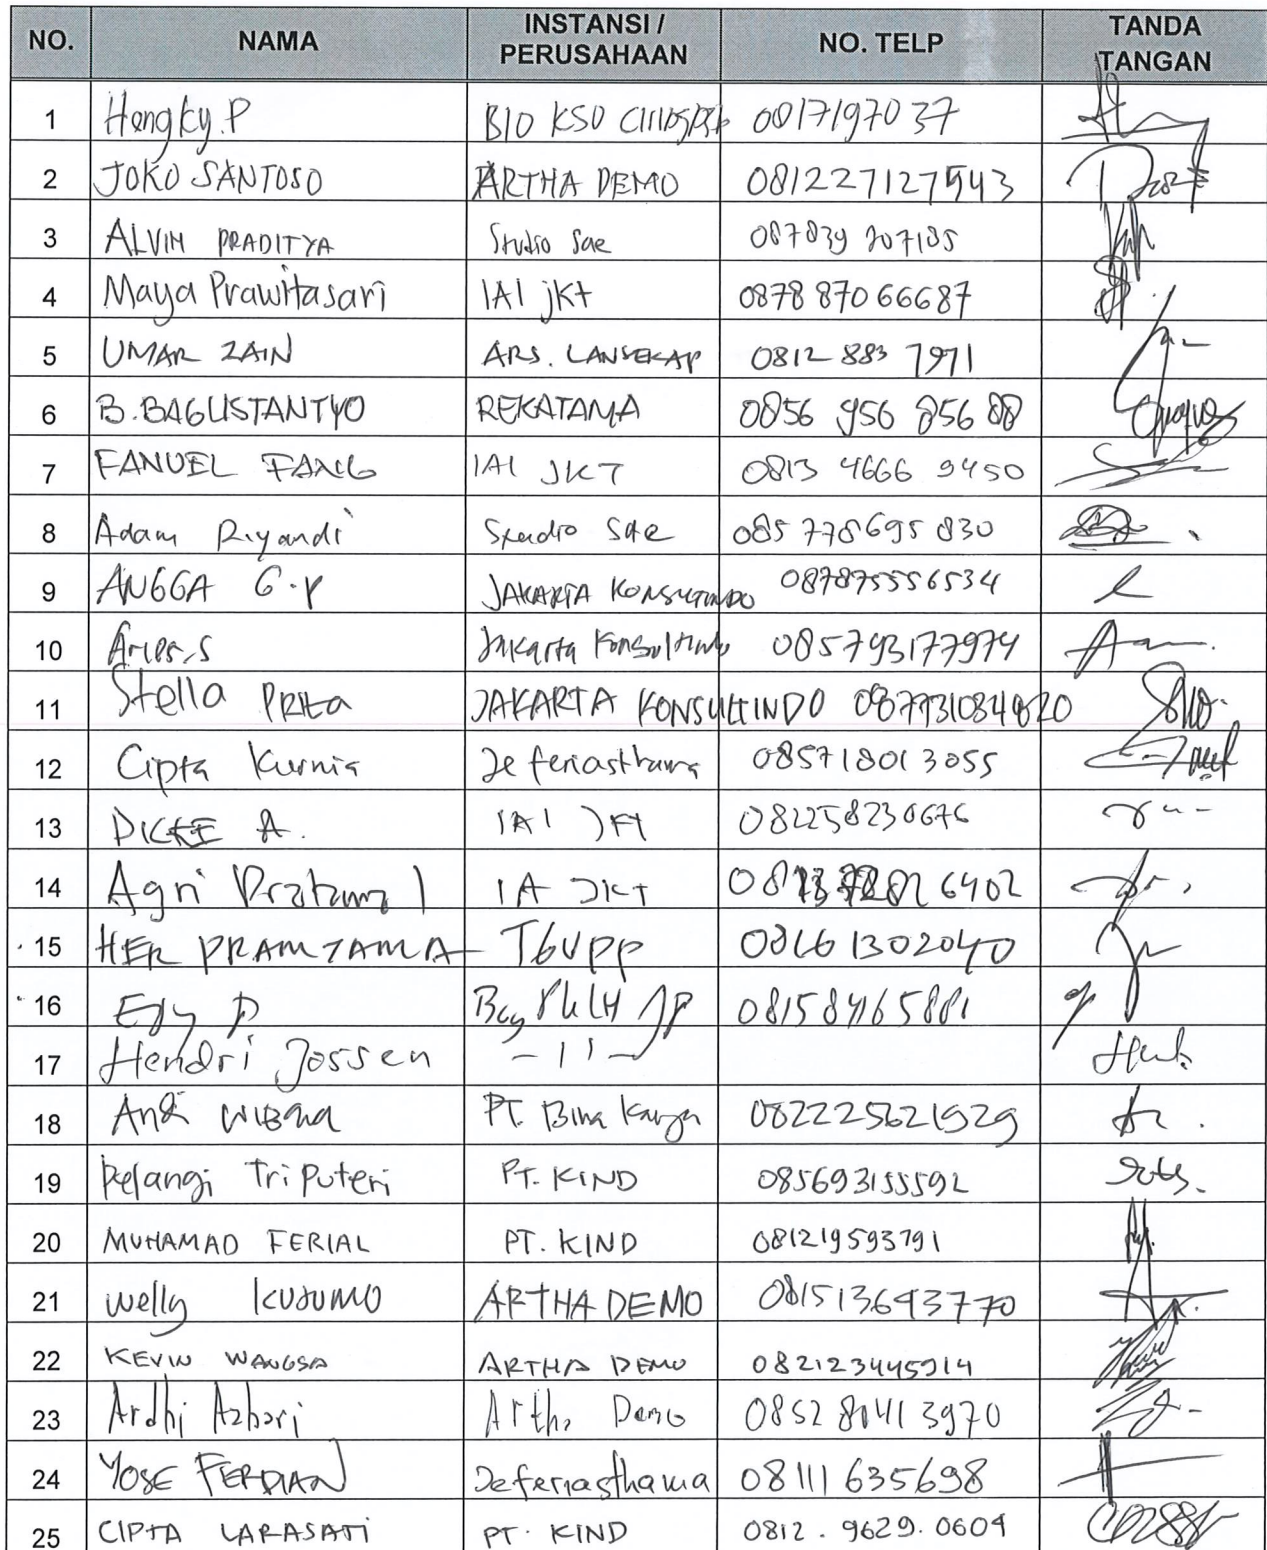 NO. NAMA INSTANSI / PERUSAHAAN NO. TELP TANDA TANGAN
1 Hengky.P BIO KSO 0817197037
2 JOKO SANTOSO ARTHA DEMO 081227127543
3 ALVIN PRADITYA Studio Sae 087839
4 Maya Prawitasari IAI jkt 0878 870 66687
5 UMAR ZAIN ARS. LANSEKAP 0812 883 7971
6 B.BAGUSTANTYO REKATAMA 0856 956 856 88
7 FANUEL FANG IAI JKT 0813 4666 9450
8 Adam Riyandi Studio Sae 085 778695 830
9 ANGGA G.P JAKARTA KONSULTINDO 087875556534
10 Aries.S Jakarta Konsultindo 085793177974
11 Stella PRITA JAKARTA KONSULTINDO
12 Cipta Kurnia Deferiasthama 085718013055
13 DICKE A. IAI JKT 081258230676
14 Agri Pratama IA JKT
15 HER PRAMTAMA TGUPP 08161302040
16 Edy P 08158465881
17 Hendri Jossen - 11 -
18 Andi Wibawa PT. Bina Karya 082225621929
19 Pelangi Tri Puteri PT. KIND 085693155592
20 MUHAMAD FERIAL PT. KIND 081219593791
21 Welly KUSUMO ARTHA DEMO 081513693770
22 KEVIN WANGSA ARTHA DEMO 082123445914
23 Ardhi Azhari Artha Demo 0852 8041 3970
24 YOSE FERDIAN Deferiasthama 08111 635698
25 CIPTA LARASATI PT. KIND 0812. 9629. 0604